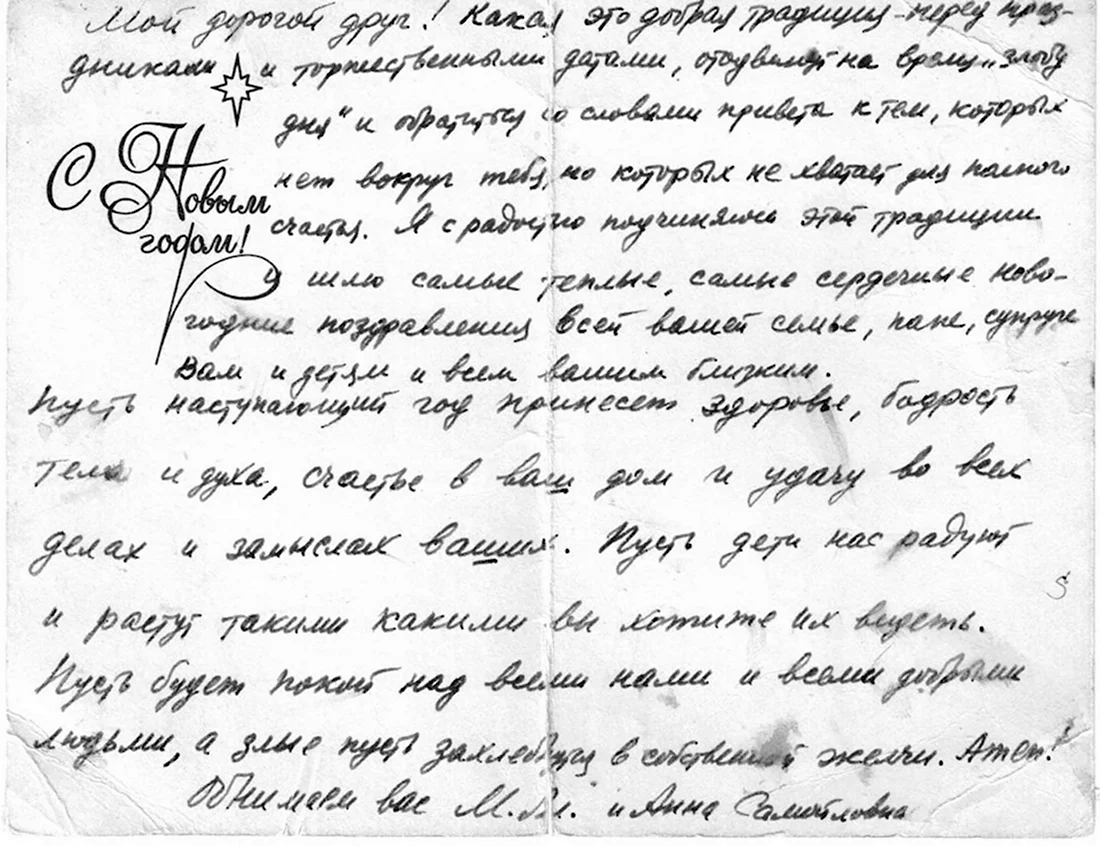 Мой дорогой друг! Какая это добрая традиция - перед праз-
дниками и торжественными датами, отодвинут на время „злобу
дня" и обратиться со словами привета к тем, которых
С Новым
годом!
нет вокруг тебя, но которых не хватает для полного
счастья. Я с радостью подчиняюсь этой традиции
и шлю самые теплые, самые сердечные ново-
годние поздравления всей вашей семье, папе, супруге
Вам и детям и всем вашим близким.
Пусть наступающий год принесет здоровье, бодрость
тела и духа, счастье в ваш дом и удачу во всех
делах и замыслах ваших. Пусть дети нас радуют
и растут такими какими вы хотите их видеть.
Пусть будет покой над всеми нами и всеми добрыми
людьми, а злые пусть захлебнутся в собственной желчи. Амен!
Обнимаем вас М. и Анна Самойловна